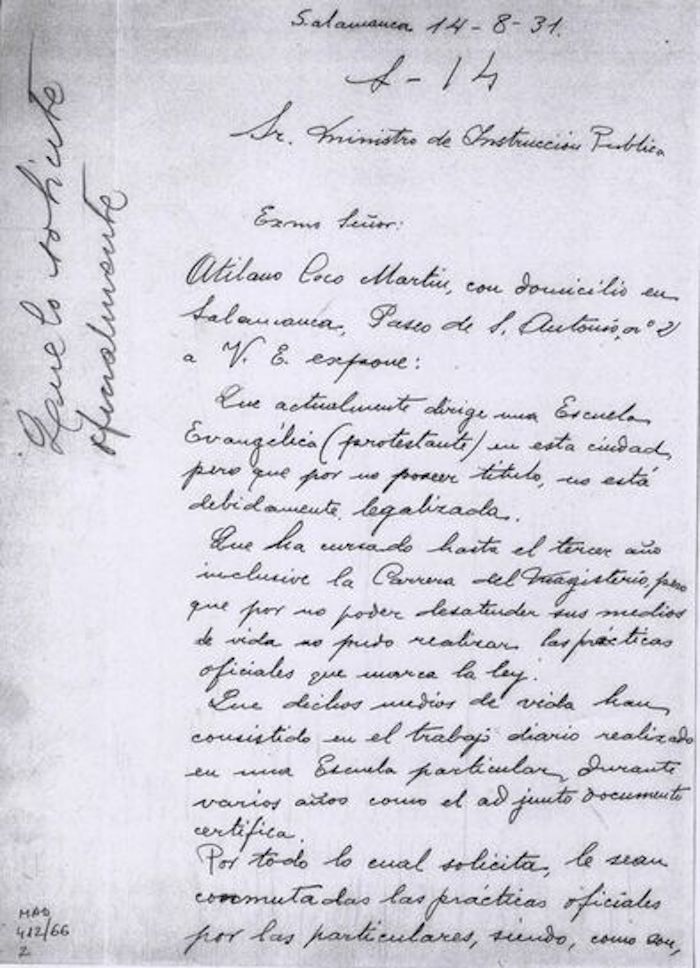 Salamanca 14-8-31.
S-14
Sr. Ministro de Instrucción Publica
Exmo Señor:
Atilano Coco Martin, con domicilio en
Salamanca, Paseo de S. Antonio, nº 2
a V. E. expone:
Que actualmente dirige una Escuela
Evangélica (protestante) en esta ciudad,
pero que por no poseer título, no está
debidamente legalizada.
Que ha cursado hasta el tercer año
inclusive la Carrera del Magisterio, pero
que por no poder desatender sus medios
de vida no pudo realizar las prácticas
oficiales que marca la ley.
Que dichos medios de vida han
consistido en el trabajo diario realizado
en una Escuela particular, durante
varios años como el adjunto documento
certifica.
Por todo lo cual solicita, le sean
conmutadas las prácticas oficiales
por las particulares, siendo, como son,
Que lo solicite
oficialmente
412/66
2